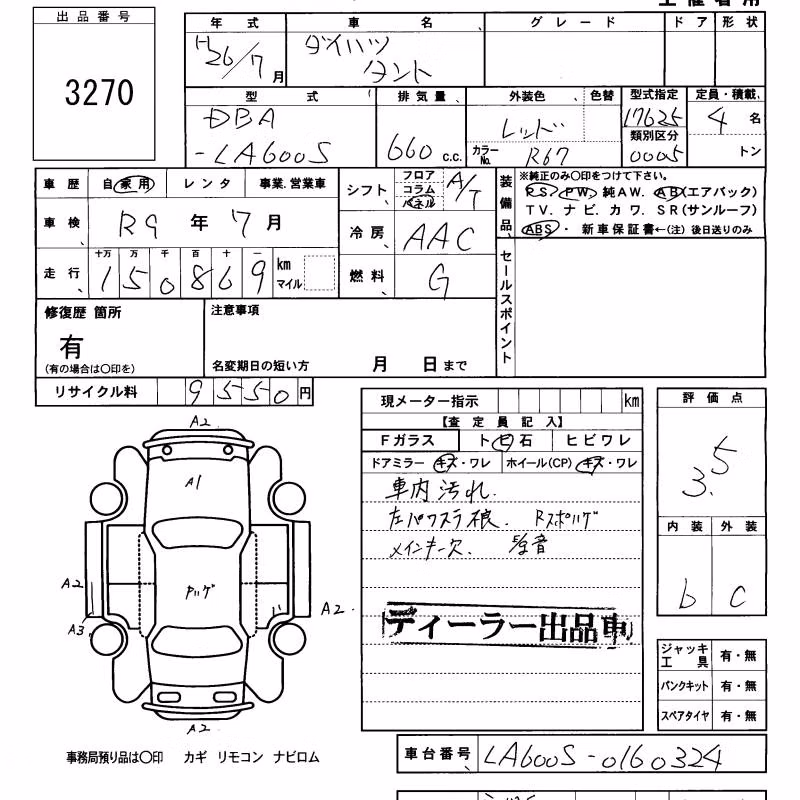 出品番号
3270
年式 車名 グレード ドア 形状
H26/7月 ダイハツ
タント
型式 排気量 外装色 色替 型式指定 定員・積載
DBA
-LA600S 660 c.c. レッド 17625 4名
カラーNo. R67 類別区分 0005 トン
車歴 自家用 レンタ 事業.営業車
シフト フロア コラム パネル A/T
装備品 ※純正のみ〇印をつけて下さい。
P.S. P.W. 純A.W. A.B(エアバック)
T.V. ナビ. カワ. S.R(サンルーフ)
ABS・ 新車保証書←(注) 後日送りのみ
車検 R9年7月
冷房 AAC
走行 十万 万 千 百 十 一
150869 km マイル
燃料 G
セールスポイント
修復歴 箇所
有
(有の場合は〇印を)
注意事項
名変期日の短い方 月 日まで
リサイクル料 9550円
現メーター指示 km
【査定員記入】
Fガラス トビ石 ヒビワレ
ドアミラー キズ・ワレ ホイール(CP) キズ・ワレ
車内汚れ.
メインキー欠.
ディーラー出品車
評価点
3.5
内装 外装
b C
A2
A1
A2
A3
A2
A2
ジャッキ 工具 有・無
パンクキット 有・無
スペアタイヤ 有・無
事務局預り品は〇印 カギ リモコン ナビロム
車台番号 LA600S-0160324